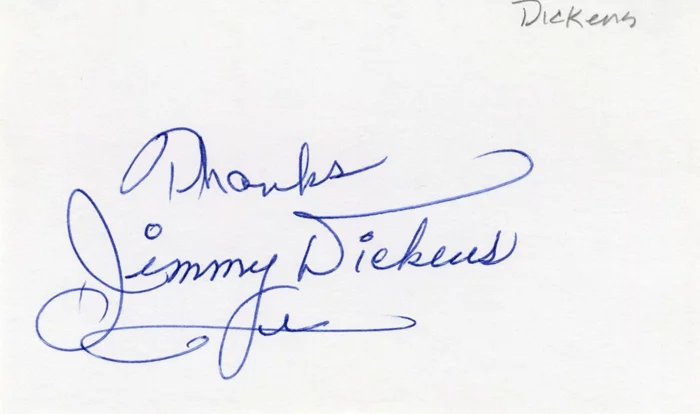 Dickens
Thanks
Jimmy Dickens